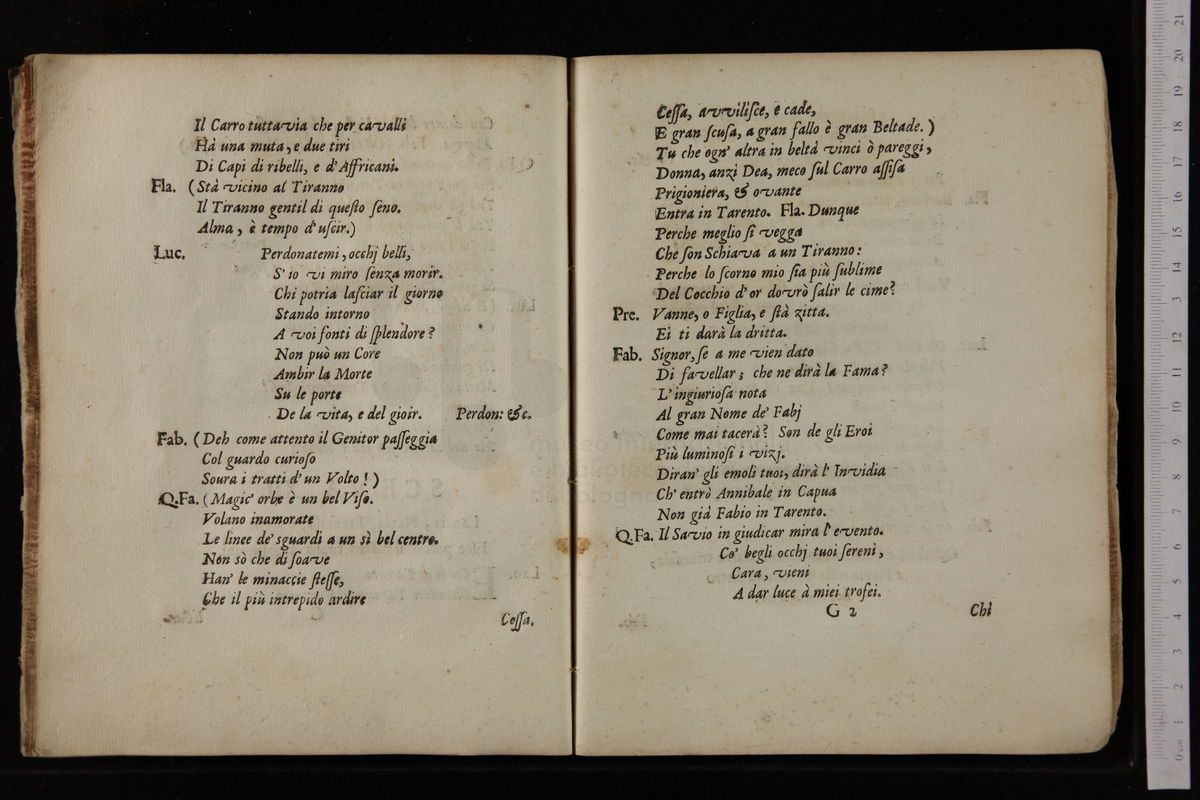 Il Carro tuttavia che per cavalli
Hà una muta, e due tiri
Di Capi di ribelli, e d'Affricani.
Fla. (Stà vicino al Tiranno
Il Tiranno gentil di questo seno.
Alma, è tempo d'uscir.)
Luc. Perdonatemi, occhj belli,
S'io vi miro senza morir.
Chi potria lasciar il giorno
Stando intorno
A voi fonti di splendore?
Non può un Core
Ambir la Morte
Su le porte
De la vita, e del gioir. Perdon: &c.
Fab. (Deh come attento il Genitor passeggia
Col guardo curioso
Soura i tratti d'un Volto!)
Q.Fa. (Magic' orbe è un bel Viso.
Volano inamorate
Le linee de' sguardi a un sì bel centro.
Non sò che di soave
Han' le minaccie stesse,
Che il più intrepido ardire
Cessa,
Cessa, avvilisce, e cade,
E gran scusa, a gran fallo è gran Beltade.)
Tu che ogn' altra in beltà vinci ò pareggi,
Donna, anzi Dea, meco sul Carro assisa
Prigioniera, & ovante
Entra in Tarento. Fla. Dunque
Perche meglio si vegga
Che son Schiava a un Tiranno:
Perche lo scorno mio sia più sublime
Del Cocchio d'or dovrò salir le cime?
Pre. Vanne, o Figlia, e stà zitta.
Ei ti darà la dritta.
Fab. Signor, se a me vien dato
Di favellar; che ne dirà la Fama?
L'ingiuriosa nota
Al gran Nome de' Fabj
Come mai tacerà? Son de gli Eroi
Più luminosi i vizj.
Diran' gli emoli tuoi, dirà l'Invidia
Ch'entrò Annibale in Capua
Non già Fabio in Tarento.
Q.Fa. Il Savio in giudicar mira l'evento.
Co' begli occhj tuoi sereni,
Cara, vieni
A dar luce à miei trofei.
G 2 Chi